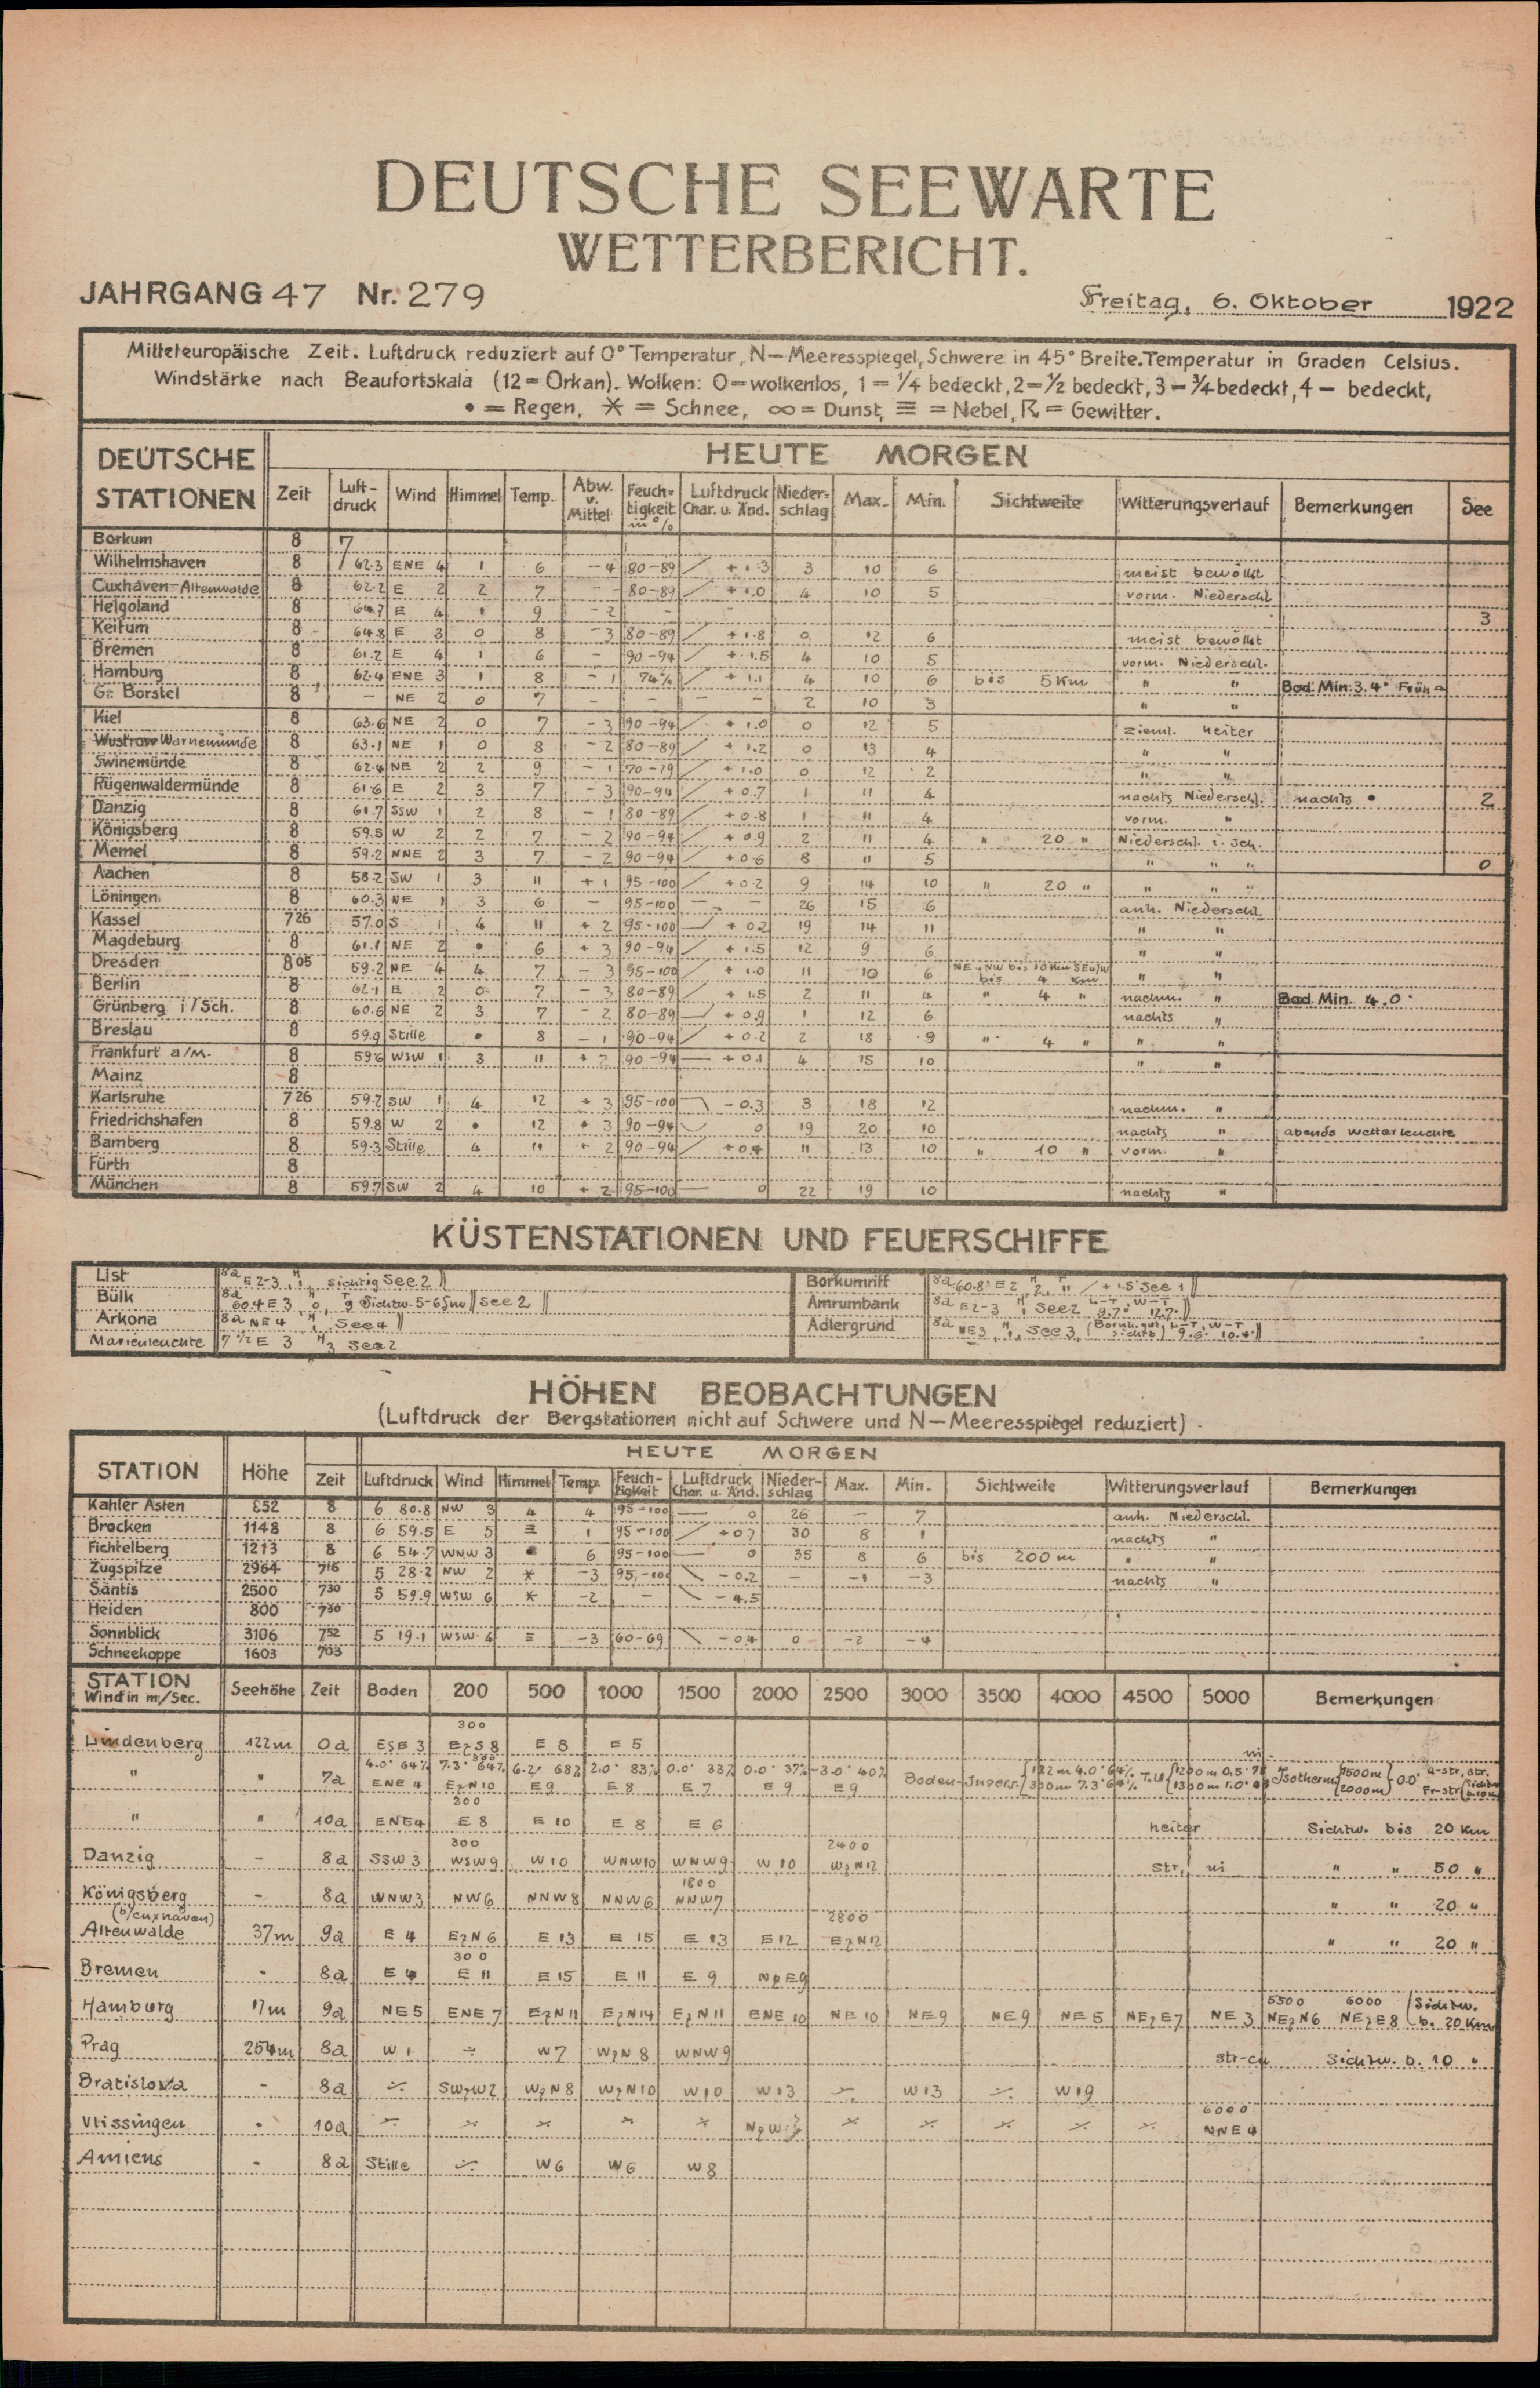 DEUTSCHE SEEWARTE
WETTERBERICHT.
JAHRGANG 47 Nr. 279 Freitag, 6. Oktober 1922
Mitteleuropäische Zeit. Luftdruck reduziert auf 0° Temperatur, N—Meeresspiegel, Schwere in 45° Breite. Temperatur in Graden Celsius.
Windstärke nach Beaufortskala (12=Orkan). Wolken: 0=wolkenlos, 1=¼ bedeckt, 2=½ bedeckt, 3—¾ bedeckt, 4— bedeckt,
• = Regen, ✶ = Schnee, ∞ = Dunst, ≡ = Nebel, ℞ = Gewitter.
DEUTSCHE STATIONEN HEUTE MORGEN
Zeit Luft-druck Wind Himmel Temp. Abw. v. Mittel Feuch-tigkeit in % Luftdruck Char. u. Änd. Nieder-schlag Max. Min. Sichtweite Witterungsverlauf Bemerkungen See
Borkum 8 7
Wilhelmshaven 8 62.3 ENE 4 1 6 -4 80-89 +1.3 3 10 6 meist bewölkt
Cuxhaven-Altenwalde 8 62.2 E 2 2 7 - 80-89 +1.0 4 10 5 vorm. Niederschl
Helgoland 8 64.7 E 4 1 9 -2 - - 3
Keitum 8 64.8 E 3 0 8 -3 80-89 +1.8 0 12 6 meist bewölkt
Bremen 8 61.2 E 4 1 6 - 90-94 +1.5 4 10 5 vorm. Niederschl.
Hamburg 8 62.4 ENE 3 1 8 -1 74% +1.1 4 10 6 bis 5 Km " " Bod. Min. 3.4° Früh
Gr. Borstel 8 - NE 2 0 7 - - - - 2 10 3 " "
Kiel 8 63.6 NE 2 0 7 -3 90-94 +1.0 0 12 5 zieml. heiter
Wustrow Warnemünde 8 63.1 NE 1 0 8 -2 80-89 +1.2 0 13 4 " "
Swinemünde 8 62.4 NE 2 2 9 -1 70-79 +1.0 0 12 2 " "
Rügenwaldermünde 8 61.6 E 2 3 7 -3 90-94 +0.7 1 11 4 nachts Niederschl. nachts • 2
Danzig 8 61.7 SSW 1 2 8 -1 80-89 +0.8 1 11 4 vorm. "
Königsberg 8 59.5 W 2 2 7 -2 90-94 +0.9 2 11 4 " 20 " Niederschl. i. Sch.
Memel 8 59.2 NNE 2 3 7 -2 90-94 +0.6 8 11 5 " " " 0
Aachen 8 58.2 SW 1 3 11 +1 95-100 +0.2 9 14 10 " 20 " " " "
Löningen 8 60.3 NE 1 3 6 - 95-100 - - 26 15 6 anh. Niederschl.
Kassel 726 57.0 S 1 4 11 +2 95-100 +0.2 19 14 11 " "
Magdeburg 8 61.1 NE 2 • 6 +3 90-94 +1.5 12 9 6 " "
Dresden 805 59.2 NE 4 4 7 -3 95-100 +1.0 11 10 6 bis 4 Km " "
Berlin 8 62.1 E 2 0 7 -3 80-89 +1.5 2 11 4 " 4 " nachm. " Bod. Min. 4.0°
Grünberg i/Sch. 8 60.6 NE 2 3 7 -2 80-89 +0.9 1 12 6 nachts "
Breslau 8 59.9 Stille • 8 -1 90-94 +0.2 2 18 9 " 4 " " "
Frankfurt a/M. 8 59.6 WSW 1 3 11 +2 90-94 +0.1 4 15 10 " "
Mainz 8
Karlsruhe 726 59.7 SW 1 4 12 +3 95-100 -0.3 3 18 12 nachm. "
Friedrichshafen 8 59.8 W 2 • 12 +3 90-94 0 19 20 10 nachts " abends Wetterleuchte
Bamberg 8 59.3 Stille 4 11 +2 90-94 +0.4 11 13 10 " 10 " vorm. "
Fürth 8
München 8 59.7 SW 2 4 10 +2 95-100 0 22 19 10 nachts "
KÜSTENSTATIONEN UND FEUERSCHIFFE
List 8a E 2-3, H 1, sichtig See 2
Bülk 8a 60.4 E 3, H 0, T 9 Sichtw. 5-6 Sm See 2
Arkona 8a NE 4, H 1, See 4
Marienleuchte 7½ E 3, H 3 See 2
Borkumriff 8a 60.8 E 2, H 2, T 11 / +1.5 See 1
Amrumbank 8a E 2-3 H 1 See 2 L-T 9.7° W-T 12.7°
Adlergrund 8a NE 3, H 1, See 3 L-T 9.6° W-T 10.4°
HÖHEN BEOBACHTUNGEN
(Luftdruck der Bergstationen nicht auf Schwere und N—Meeresspiegel reduziert)
STATION Höhe HEUTE MORGEN
Zeit Luftdruck Wind Himmel Temp. Feuch-tigkeit Luftdruck Char. u. Änd. Nieder-schlag Max. Min. Sichtweite Witterungsverlauf Bemerkungen
Kahler Asten 852 8 6 80.8 NW 3 4 4 95-100 0 26 - 7 anh. Niederschl.
Brocken 1148 8 6 59.5 E 5 ≡ 1 95-100 +0.7 30 8 1 nachts "
Fichtelberg 1213 8 6 54.7 WNW 3 • 6 95-100 0 35 8 6 bis 200 m " "
Zugspitze 2964 716 5 28.2 NW 2 ✶ -3 95-100 -0.2 - -1 -3 nachts "
Säntis 2500 730 5 59.9 WSW 6 ✶ -2 - -4.5
Heiden 800 730
Sonnblick 3106 752 5 19.1 WSW 4 ≡ -3 60-69 -0.4 0 -2 -4
Schneekoppe 1603 703
STATION Wind in m/Sec. Seehöhe Zeit Boden 200 500 1000 1500 2000 2500 3000 3500 4000 4500 5000 Bemerkungen
300
Lindenberg 122 m 0a ESE 3 EzS 8 E 8 E 5 ni.
4.0° 64% 7.3° 64% 6.2° 68% 2.0° 83% 0.0° 33% 0.0° 37% -3.0° 40%
" " 7a ENE 4 EzN 10 E 9 E 8 E 7 E 9 E 9 Boden-Invers. {122 m 4.0° 64% 300 m 7.3° 64% Isotherm {1500 m 2000 m} 0.0° a-str, str. Fr-str
300
" " 10a ENE 4 E 8 E 10 E 8 E 6 heiter Sichtw. bis 20 Km
300 2400
Danzig - 8a SSW 3 WSW 9 W 10 WNW 10 WNW 9 W 10 WzN 12 str, ni " " 50 "
1800
Königsberg - 8a WNW 3 NW 6 NNW 8 NNW 6 NNW 7 " " 20 "
(b/Cuxhaven) 2800
Altenwalde 37 m 9a E 4 EzN 6 E 13 E 15 E 13 E 12 EzN 12 " " 20 "
300
Bremen - 8a E 4 E 11 E 15 E 11 E 9 NzE 9
5500 6000
Hamburg 17 m 9a NE 5 ENE 7 EzN 11 EzN 14 EzN 11 ENE 10 NE 10 NE 9 NE 9 NE 5 NEzE 7 NE 3 NEzN 6 NEzE 8 (Sichtw. b. 20 Km
Prag 254 m 8a W 1 ÷ W 7 WzN 8 WNW 9 str-cu Sichtw. b. 10 "
Bratislova - 8a ÷ SWzW 2 WzN 8 WzN 10 W 10 W 13 ÷ W 13 ÷ W 19
6000
Vlissingen - 10a ÷ ÷ ÷ ÷ ÷ NzW ÷ ÷ ÷ ÷ ÷ NNE 4
Amiens - 8a Stille ÷ W 6 W 6 W 8